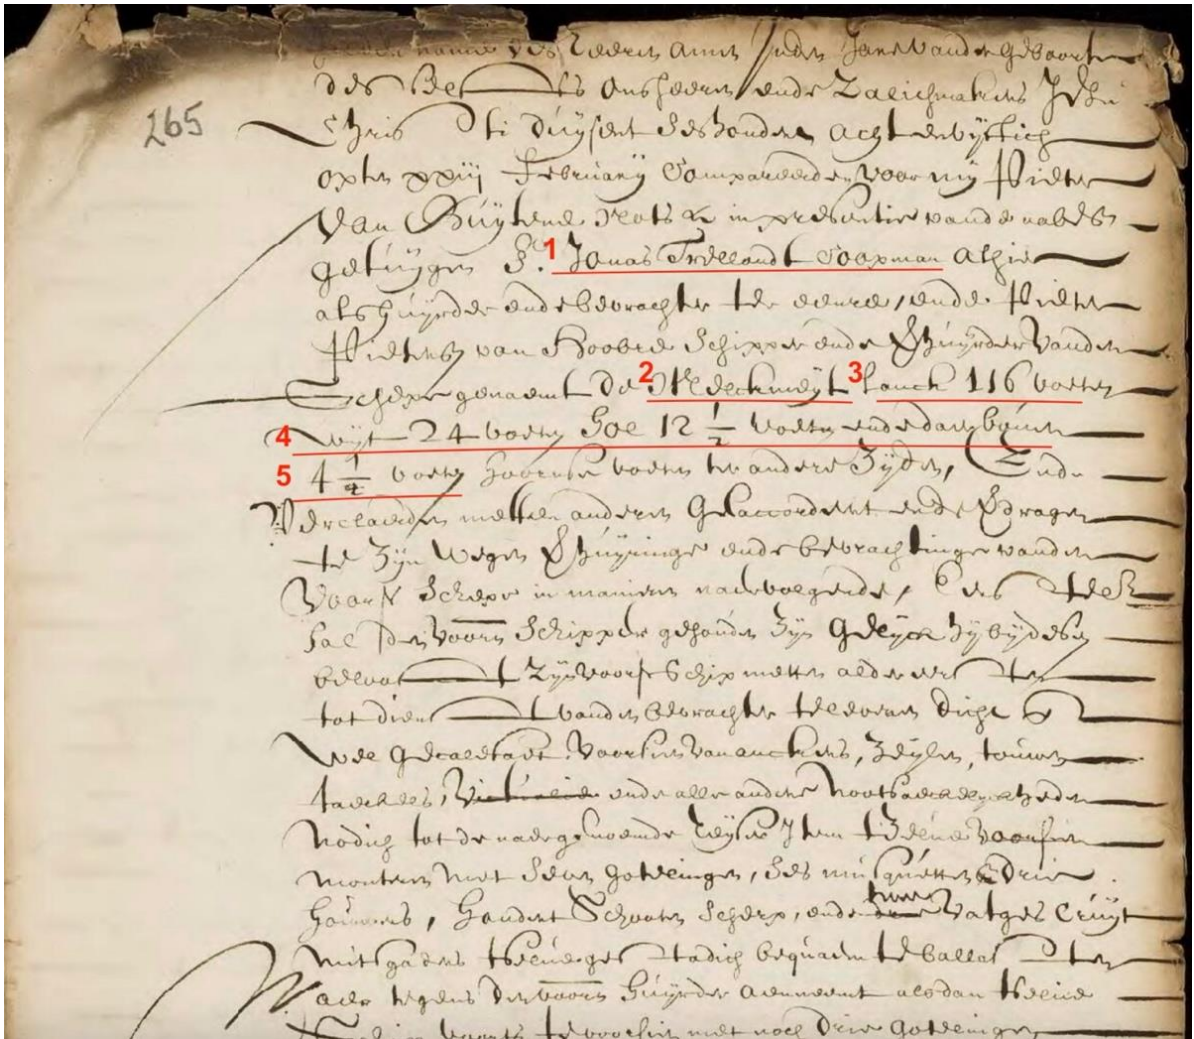 name des Heeren Amen Inden Jare vande geboorte
des ons heeren ende Zalichmakers Jesu
265
Christi duijsent seshondert acht envijftich
opten xxiij februarij Compareerde voor mij Pieter
van Buijtene Nots in presentie vande nabes
getuijgen Sr. 1 Jonas Trellandt Coopman alhier
als huijrder ende bevrachter ter eenre, ende Pieter
Pieters van Schipper ende Verhuijrder vanden
Schepe genaemt De 2 Melckmeijt 3 lanck 116 voeten
4 wijt 24 voeten hol 12 1/2 voeten ende daer boven
5 4 1/4 voeten hoornse voeten ter andere zijden, Ende
Verclaerden metten anderen Geaccordeert ende Verdragen
te zijn wegen Verhuijringe ende bevrachtinge vanden
Voors Schepe in manieren naervolgende, Eerst
sal den voorn Schipper gehouden zijn Gelijck hij bij desen
beloot zijn voors Schip metten aldereersten
tot dienst vanden bevrachter te leveren dicht
wel gecalefaet voorsien van anckers, zeijlen, touwen
taeckels, ende alle andere nootsaeckelijckheden
Nodich tot de naergenoemde Reijse Item tzelve voorsien
monteren met seven Gotelingen, ses musquetten drie
houwers, hondert Schooten Scherp, ende twee Vatges Cruijt
mitsgaders tselve bequaem te ballasten
Waer tegens den voorn huijrder aenneemt alsdan tselve
voorts te voorsien met noch drie Gotelingen